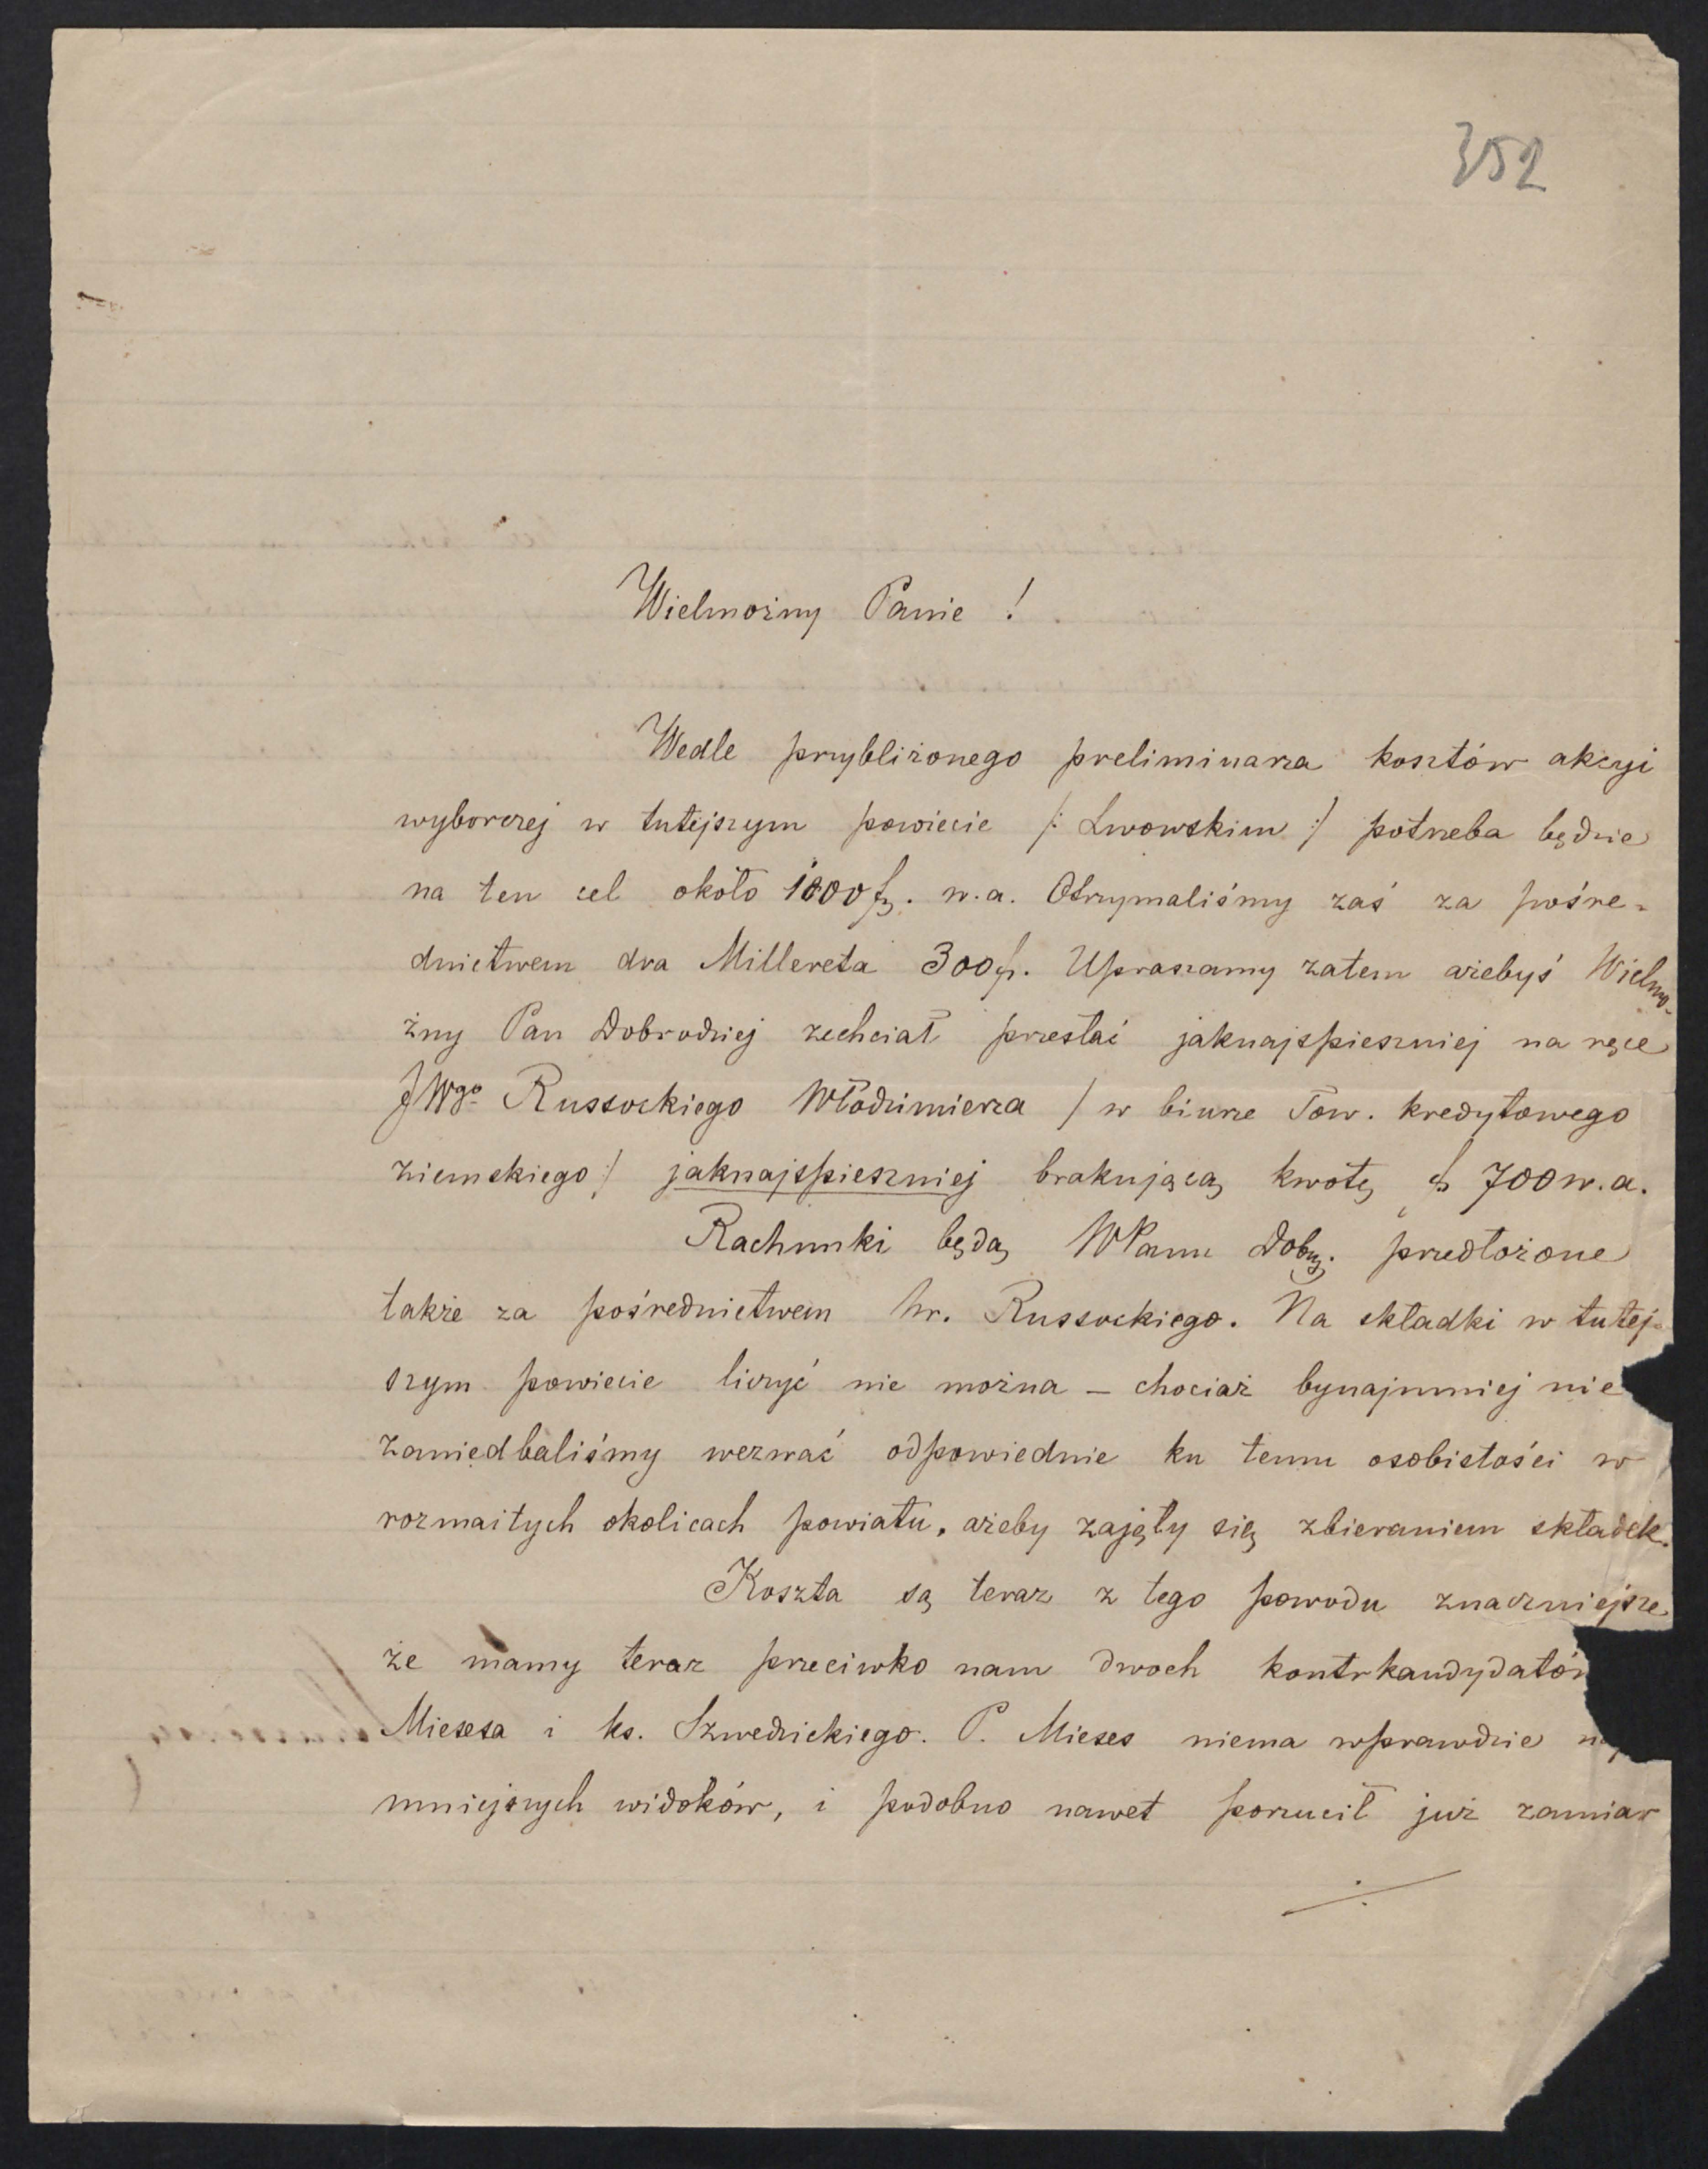 352
Wielmożny Panie !
Wedle przybliżonego preliminarza kosztów akcyi
wyborczej w tutejszym powiecie /: Lwowskim :/ potrzeba będzie
na ten cel około 1000 fl. w.a. Otrzymaliśmy zaś za pośre-
dnictwem dra Millereta 300 fl. Upraszamy zatem ażebyś Wielmo-
żny Pan Dobrodziej zechciał przesłać jaknajspieszniej na ręce
JWgo Russockiego Włodzimierza / w biurze Tow. kredytowego
ziemskiego :/ jaknajspieszniej brakującą kwotę fl 700 w.a.
Rachunki będą WPanu Dobrz. przedłożone
także za pośrednictwem hr. Russockiego. Na składki w tutej-
szym powiecie liczyć nie można – chociaż bynajmniej nie
zaniedbaliśmy wezwać odpowiednie ku temu osobistości w
rozmaitych okolicach powiatu, ażeby zajęły się zbieraniem składek.
Koszta są teraz z tego powodu znaczniejsze
że mamy teraz przeciwko nam dwoch kontrkandydatów
Miesesa i ks. Szwedzickiego. P. Mieses niema wprawdzie
mniejszych widoków, i podobno nawet porzucił już zamiar